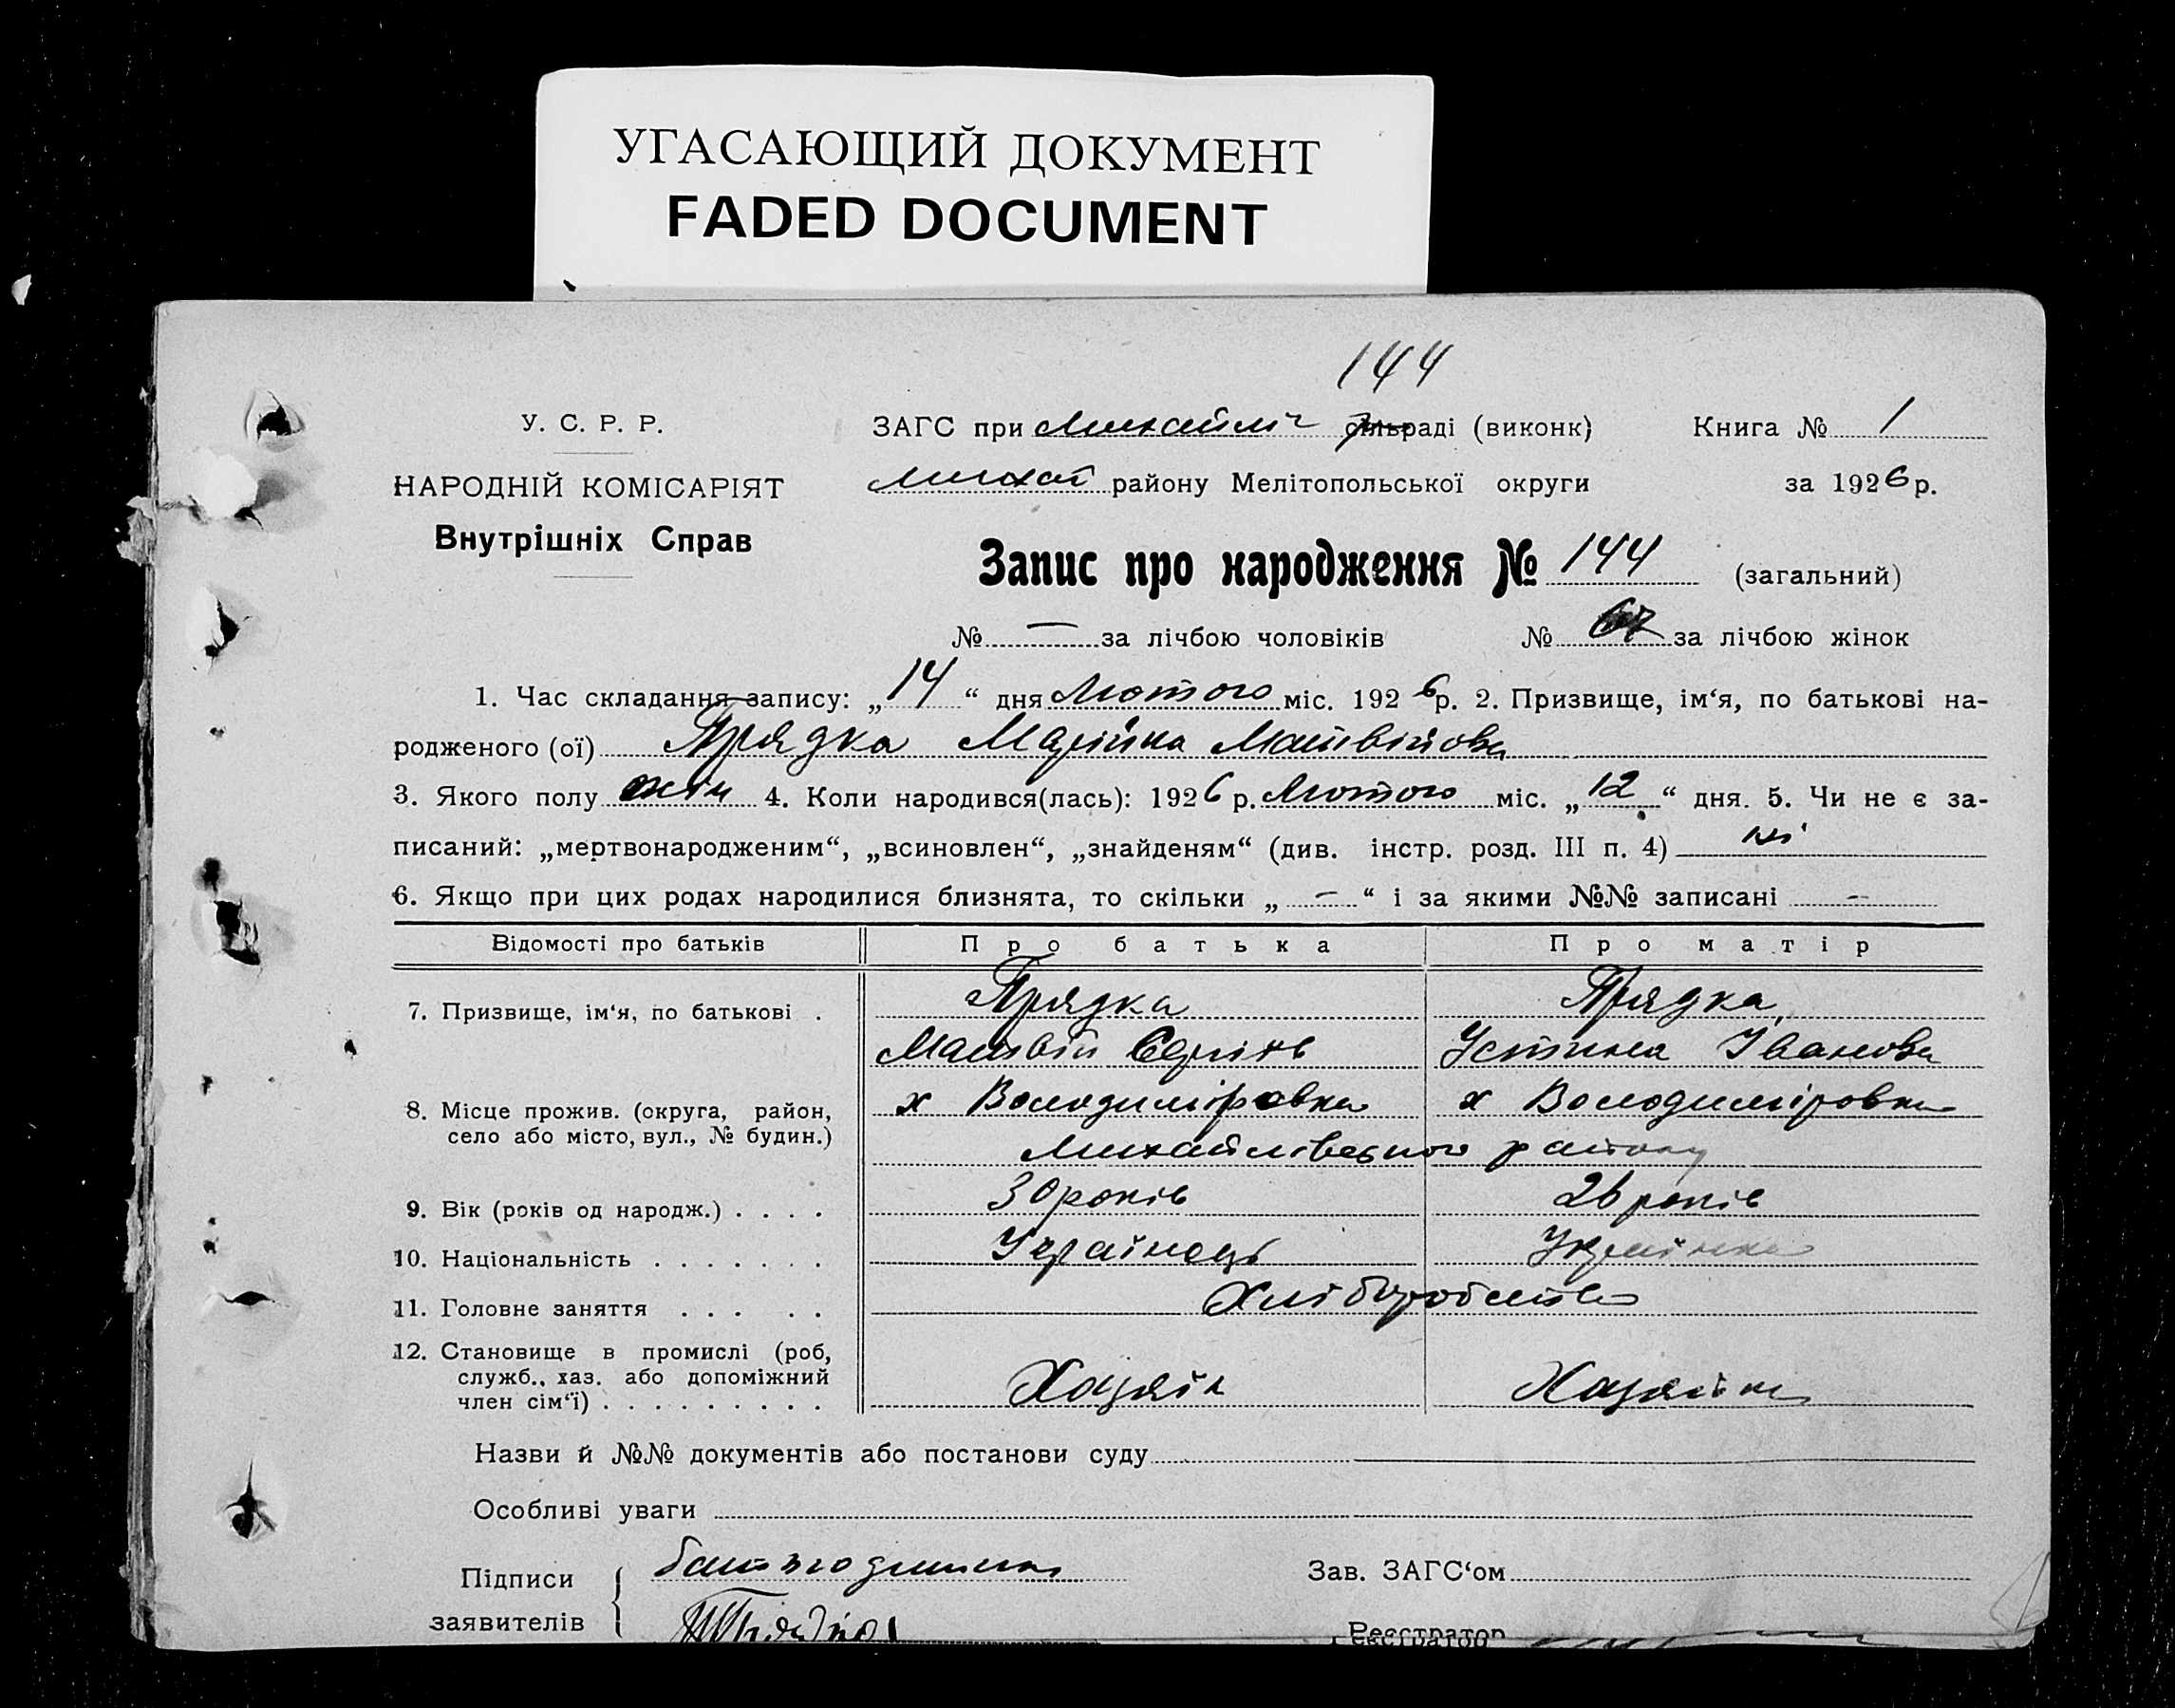 УГАСАЮЩИЙ ДОКУМЕНТ
FADED DOCUMENT
144
У. С. Р. Р.
ЗАГС при Михайлів сільраді (виконк) Книга № 1
НАРОДНІЙ КОМІСАРІЯТ
Михай району Мелітопольської округи за 1926 р.
Внутрішніх Справ
Запис про народження № 144 (загальний)
№ — за лічбою чоловіків № 67 за лічбою жінок
1. Час складання запису: „14“ дня Лютого міс. 1926 р. 2. Призвище, ім‘я, по батькові на-
родженого (ої) Прядка Марійка Матвійова
3. Якого полу жін 4. Коли народився(лась): 1926 р. Лютого міс. „12“ дня. 5. Чи не є за-
писаний: „мертвонародженим“, „всиновлен“, „знайденям“ (див. інстр. розд. III п. 4) ні
6. Якщо при цих родах народилися близнята, то скільки „—“ і за якими №№ записані —
Відомості про батьків Про батька Про матір
7. Призвище, ім‘я, по батькові . Прядка Прядка
Матвій Устина Іванова
8. Місце прожив. (округа, район, х Володиміровка х Володиміровка
село або місто, вул., № будин.)
Михайлівського району
9. Вік (років од народж.) . . . . 30 років 26 років
10. Національність . . . . . . . Українець Українка
11. Головне заняття . . . . . Хліборобство
12. Становище в промислі (роб,
служб., хаз. або допоміжний Хазяїн Хазяїка
член сім‘ї) . . . . . . . . .
Назви й №№ документів або постанови суду
Особливі уваги
Підписи Зав. ЗАГС‘ом
заявителів
Реєстратор